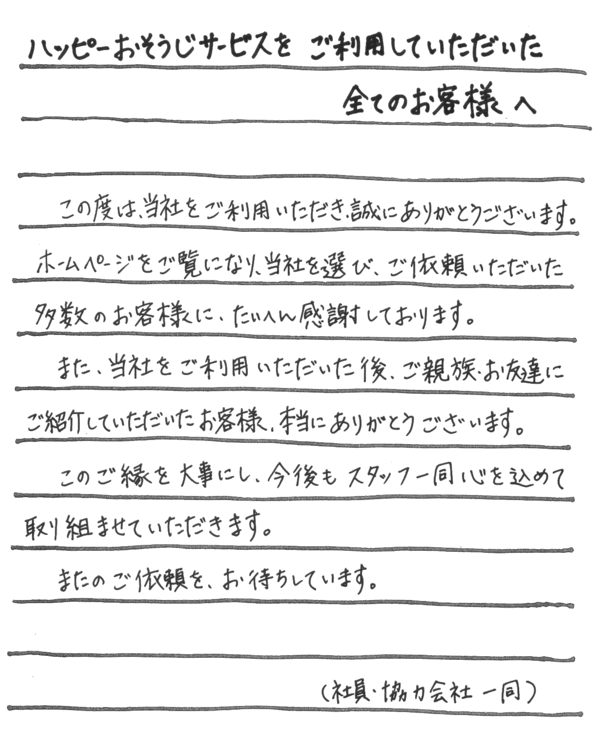 ハッピーおそうじサービスを ご利用していただいた
全てのお客様へ
この度は、当社をご利用いただき、誠にありがとうございます。
ホームページをご覧になり、当社を選び、ご依頼いただいた
多数のお客様に、たいへん感謝しております。
また、当社をご利用いただいた後、ご親族・お友達に
ご紹介していただいたお客様、本当にありがとうございます。
このご縁を大事にし、今後もスタッフ一同心を込めて
取り組ませていただきます。
またのご依頼を、お待ちしています。
(社員・協力会社一同)